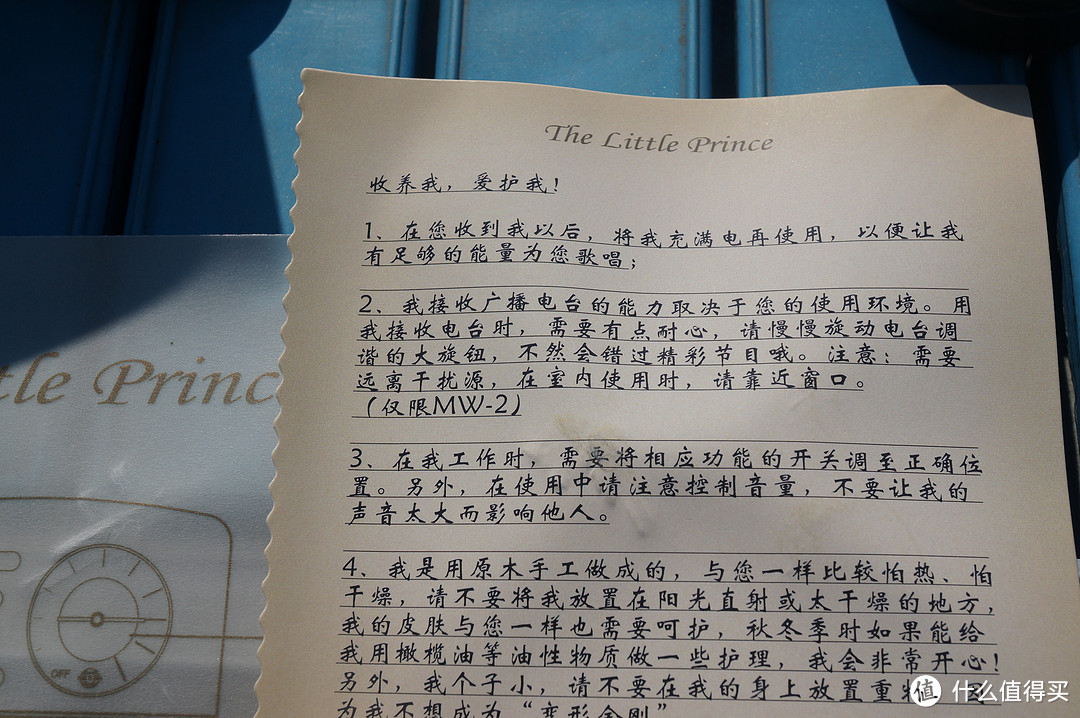 The Little Prince
收养我，爱护我！
1、在您收到我以后，将我充满电再使用，以便让我
有足够的能量为您歌唱；
2、我接收广播电台的能力取决于您的使用环境。用
我接收电台时，需要有点耐心，请慢慢旋动电台调
谐的大旋钮，不然会错过精彩节目哦。注意：需要
远离干扰源，在室内使用时，请靠近窗口。
（仅限MW-2）
3、在我工作时，需要将相应功能的开关调至正确位
置。另外，在使用中请注意控制音量，不要让我的
声音太大而影响他人。
4、我是用原木手工做成的，与您一样比较怕热、怕
干燥，请不要将我放置在阳光直射或太干燥的地方，
我的皮肤与您一样也需要呵护，秋冬季时如果能给
我用橄榄油等油性物质做一些护理，我会非常开心！
另外，我个子小，请不要在我的身上放置重
为我不想成为“变形金刚”
tle Princ
OFF
值 什么值得买